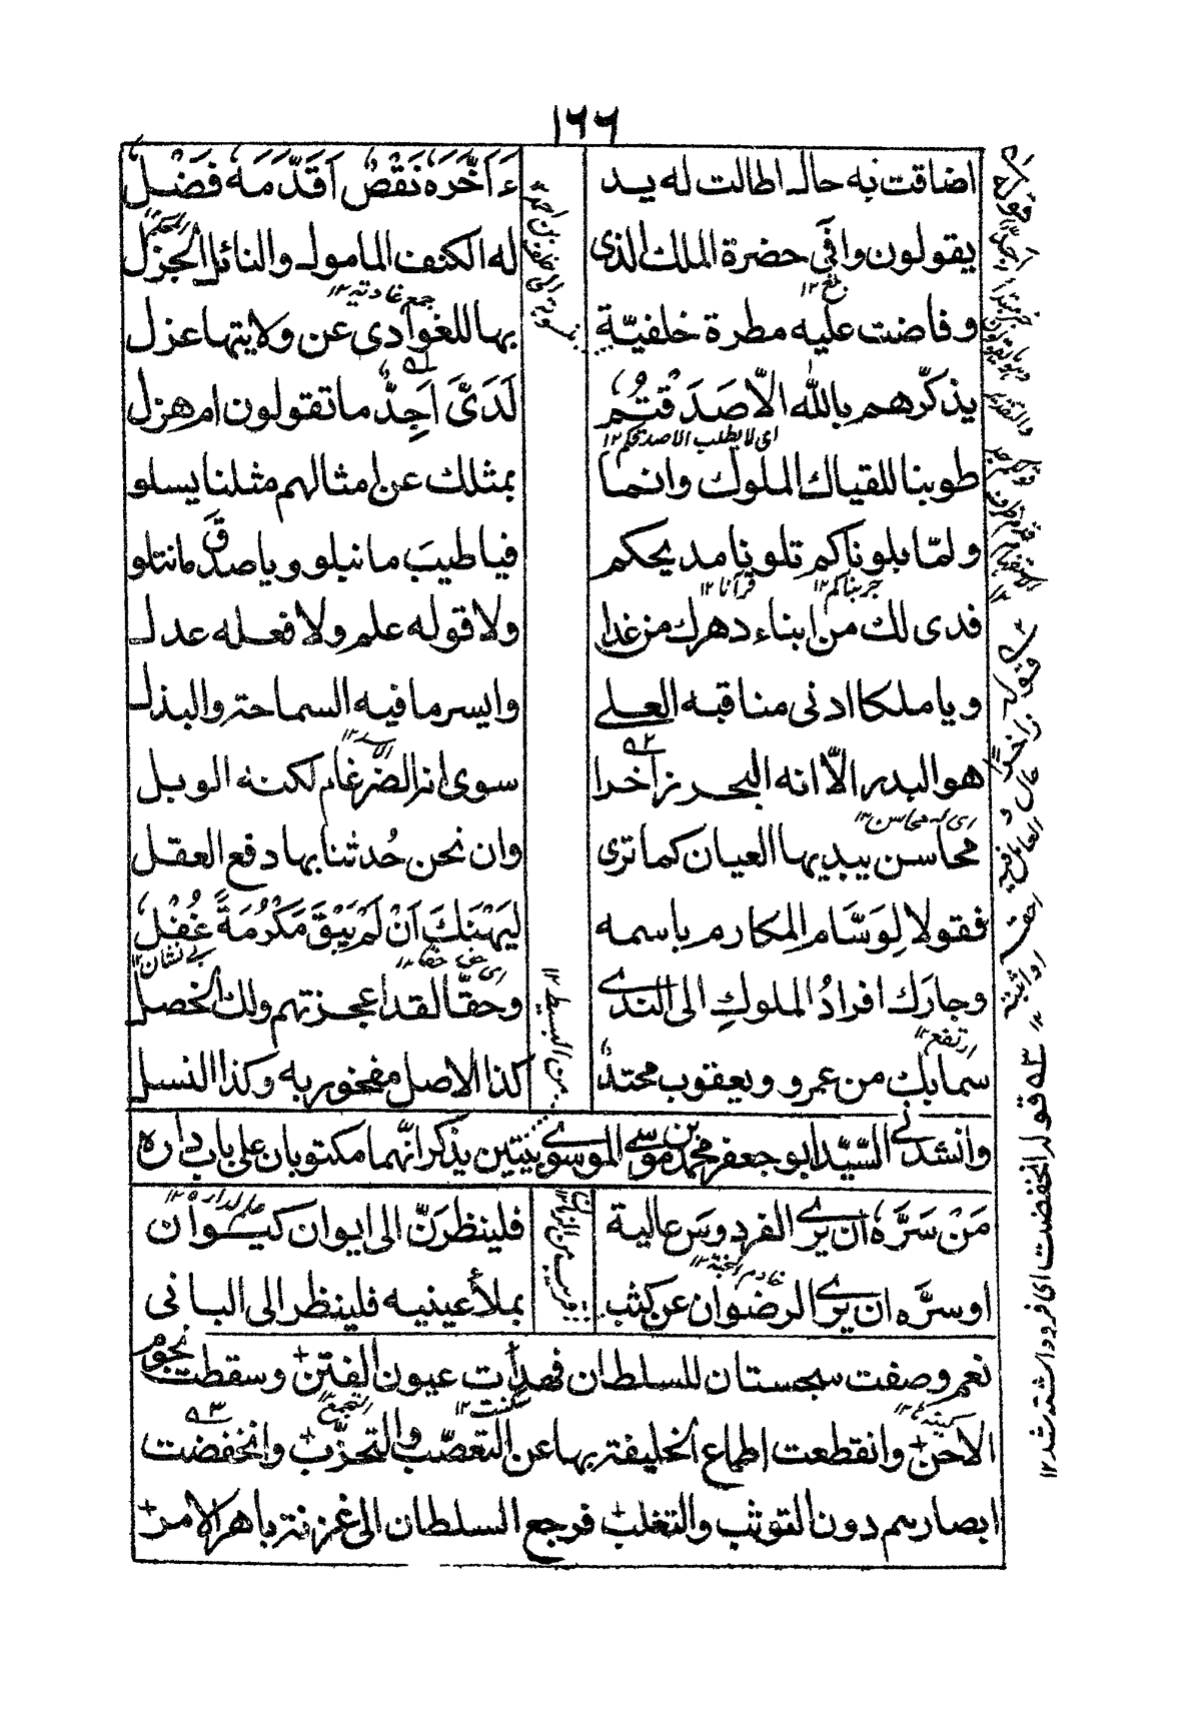 ١٦٦
اضاقت به حال اطالت له يد ءَاَخَّرَهٗ نَقْصٌ اَقَدَّمَهٗ فَضْلٌ
يقولون وافى حضرة الملك الذى له الكنف المامول والنائل الجزل
وفاضت عليه مطرة خلفيّة بها للغوادى عن ولايتها عزل
يذكّرهم بالله الّا صَدَقْتُمْ لَدَىَّ اَجِدٌّ ما تقولون ام هزل
طوينا للقياك الملوك وانما بمثلك عن امثالهم مثلنا يسلو
ولمّا بلوناكم تلونا مديحكم فيا طيبَ ما نبلو ويا صدقَ ما نتلو
فدى لك من ابناء دهرك من غدا ولا قوله علم ولا فعله عدل
ويا ملكا ادنى مناقبه العلى وايسر ما فيه السماحة والبذل
هو البدر الّا انه البحر زاخرا سوى انه الضرغام لكنه الوبل
محاسن يبديها العيان كما ترى وان نحن حُدثنا بها دفع العقل
فقولا لِوَسَّام المكارم باسمه لِيَهْنِكَ اَنْ لَمْ يَبْقَ مَكْرُمَةً غُفْلٌ
وجارك افرادُ الملوكِ الى الندى وحقّا لقد اعجزتهم ولك الخصل
سما بك من عمرو ويعقوب محتدٌ كذا الاصل مفخور به وكذا النسل
وانشدنى السيّد ابو جعفر محمد بن موسى الموسوى بيتين يذكر انّهما مكتوبان على باب داره
مَنْ سَرَّهٗ ان يرى الفردوسَ عالية فلينظرَنّ الى ايوان كيوان
او سرّه ان يرى الرضوان عن كثب بملأ عينيه فلينظر الى البانى
نعم وصفت سجستان للسلطان فهدأت عيون الفتن وسقطت نجوم
الاحن وانقطعت اطماع الخليفة بها عن التعصّب والتحزّب وانخفضت
ابصارهم دون التوثب والتغلب فرجع السلطان الى غزنة باهر الامر
الجكم ١٢
بلغ ١٢
جمع غادية ١٢
اى لا يطلب الا صدقكم ١٢
جربناكم ١٢
قرآنا ١٢
الاسد ١٢
اى له محاسن ١٢
بى نشان ١٢
ارتفع ١٢
من البسيط ١٢
علم لداره ١٢
خادم الجنة ١٢
سكنت ١٢
التجمع ١٢
كينه ١٢
٣ قوله انخفضت اى فرود اشته شد ١٢